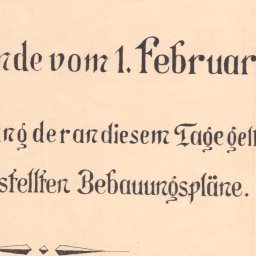 nde vom 1. Februar
ng der an diesem Tage gelt
stellten Bebauungspläne.